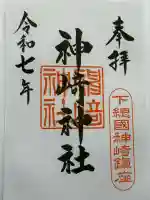 奉拝
神崎神社
下總國神崎鎮座
令和七年